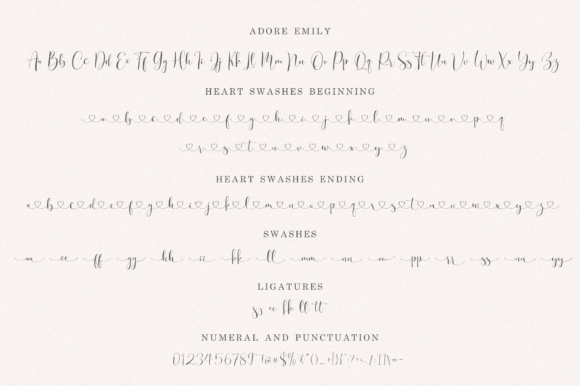 ADORE EMILY
Aa Bb Cc Dd Ee Ff Gg Hh Ii Jj Kk Ll Mm Nn Oo Pp Qq Rr Ss Tt Uu Vv Ww Xx Yy Zz
HEART SWASHES BEGINNING
a b c d e f g h i j k l m n o p q
r s t u v w x y z
HEART SWASHES ENDING
a b c d e f g h i j k l m n o p q r s t u v w x y z
SWASHES
ff gg hh ii kk ll mm nn pp rr ss yy
LIGATURES
ll tt
NUMERAL AND PUNCTUATION
0123456789 !@#$%